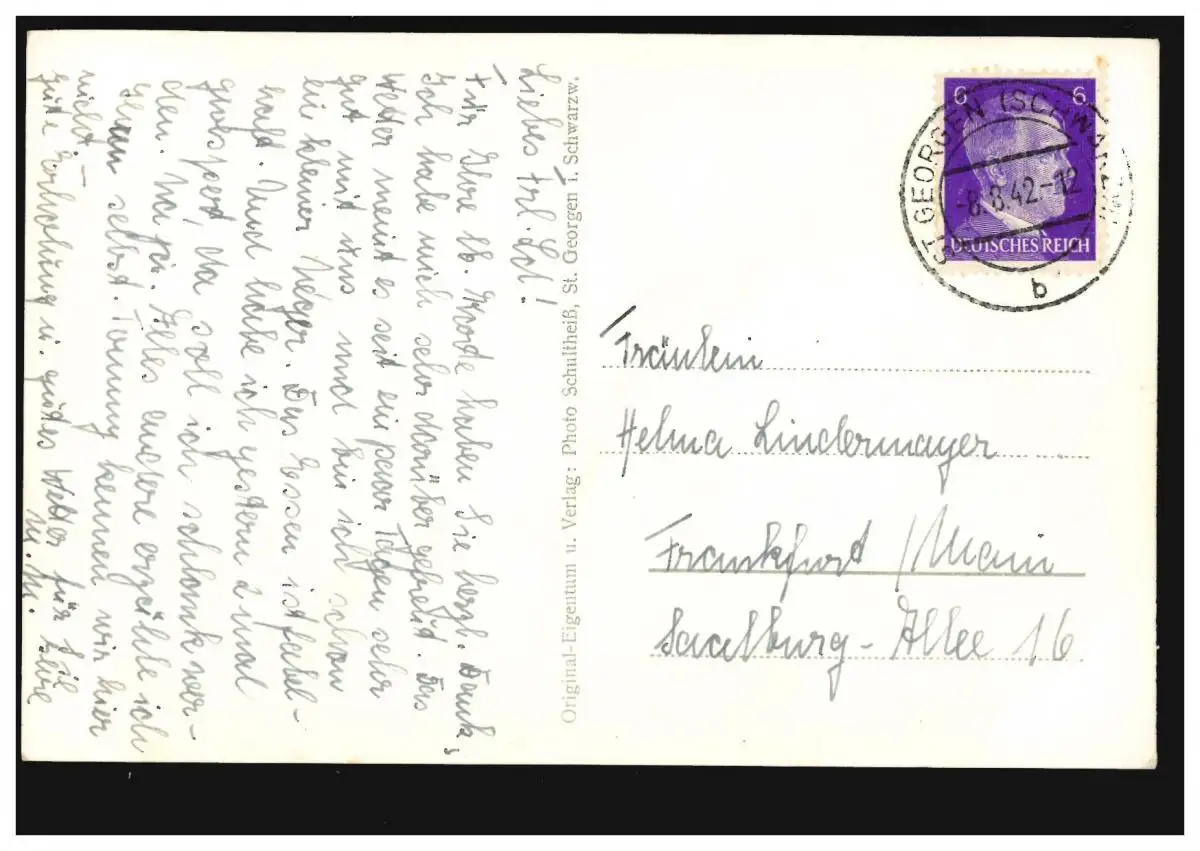 Liebes Frl. Lot!
Für Ihre lb. Worte haben Sie herzl. Dank,
Ich habe mich sehr darüber gefreut. Das
Wetter meint es seit ein paar Tagen sehr
gut mit uns und bin ich schon
ein kleiner Neger. Das Essen ist fabel-
haft. Und habe ich gestern 2 mal
gevespert, da soll ich schlank wer-
den. Na ja. Alles andere erzähle ich
Ihnen selbst. Tommy kennen wir hier
nicht. –
gute Erholung u. gutes Wetter für Sie
Original-Eigentum u. Verlag: Photo Schultheiß, St. Georgen i. Schwarzw.
6 6
DEUTSCHES REICH
ST. GEORGEN (SCHWARZW)
-8.8.42.-12
b
Fräulein
Helma Lindermayer
Frankfurt / Main
Saalburg-Allee 16